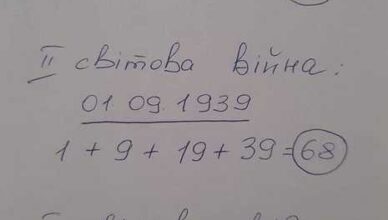 II світова війна:
01.09.1939
1 + 9 + 19 + 39 = 68